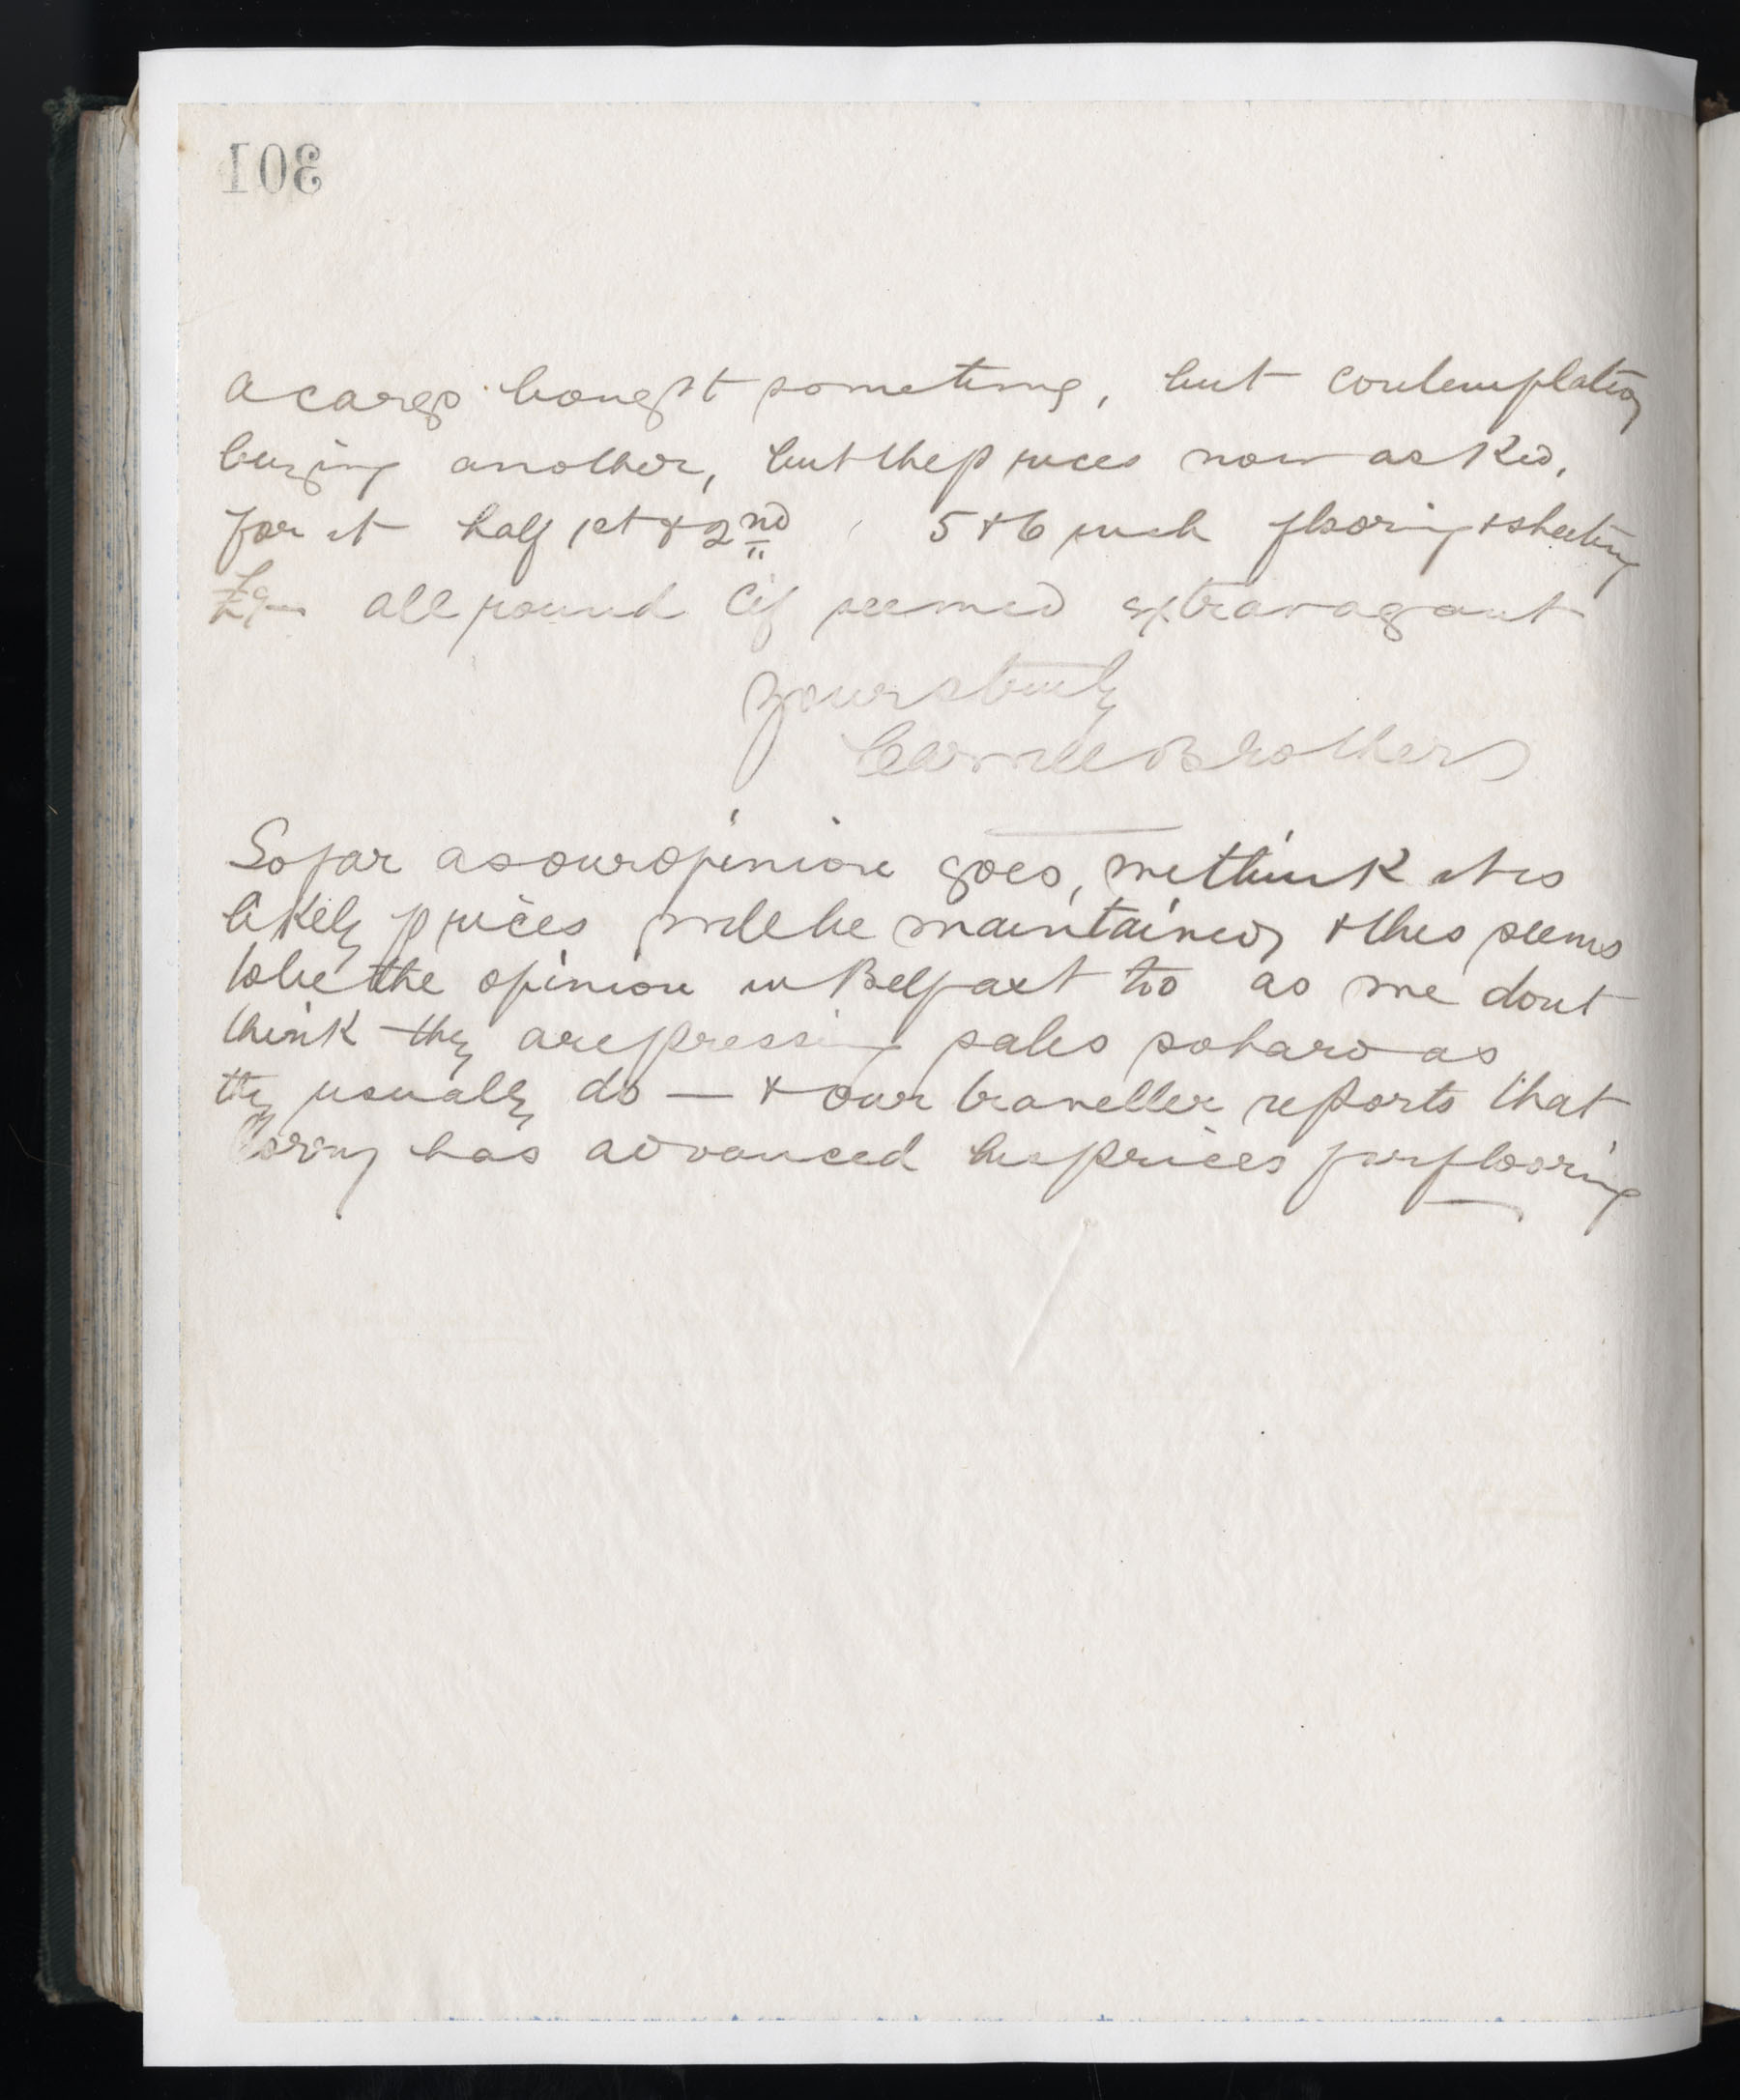 301
a cargo bought sometime, but contemplating
buying another, but the prices now asked,
for it half 1st & 2nd, 5 & 6 inch flooring & sheeting
£9 all round cif seemed extravagant
Yours truly
Brothers
So far as our opinion goes, we think it is
likely prices will be maintained, & this seems
to be the opinion in Belfast too as we dont
think they are pressing sales so hard as
they usually do — & our traveller reports that
has advanced his prices for flooring